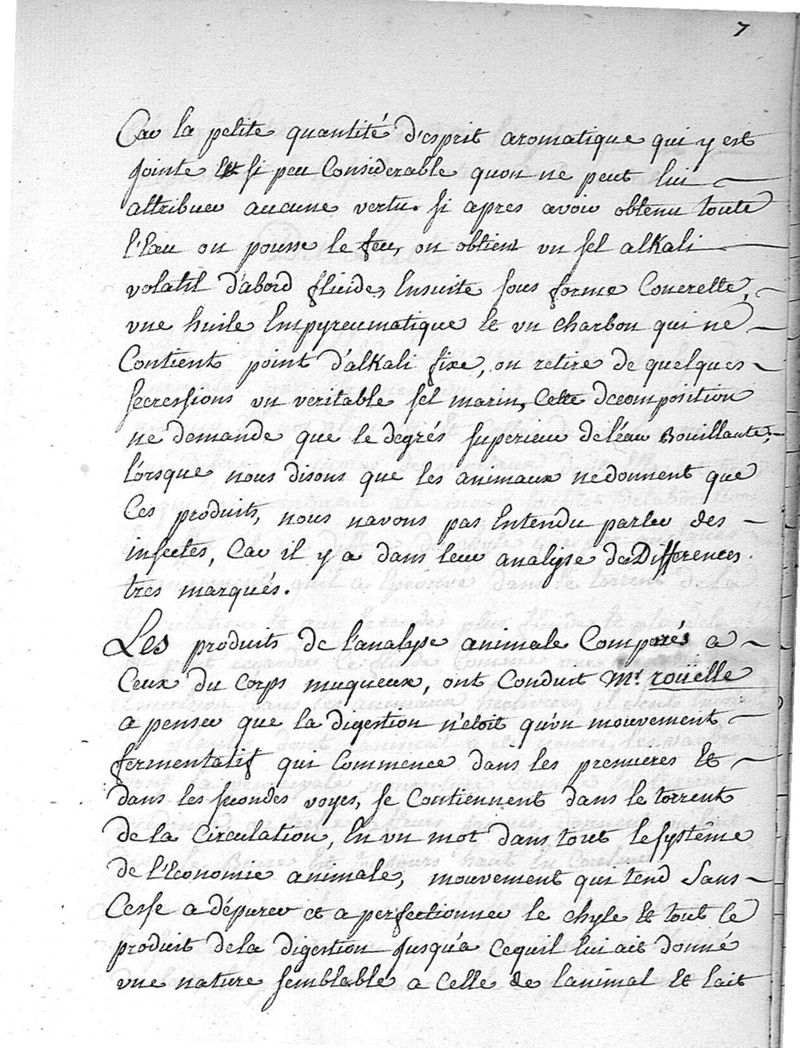 7
Car la petite quantité d'esprit aromatique qui y est
jointe Est si peu Considerable quon ne peut lui
attribuer aucune vertu. si apres avoir obtenu toute
l'Eau on pousse le feu, on obtient un sel alkali
volatil d'abord fluide, Ensuite sous forme Concrette,
une huile Empyreumatique Et un charbon qui ne
Contient point d'alkali fixe, on retire de quelques
secressions un veritable sel marin, Cette decomposition
ne demande que le degrés superieur de l'eau Bouillante,
lorsque nous disons que les animaux ne donnent que
Ces produits, nous navons pas Entendu parler des
insectes, Car il y a dans leur analyse de Differences
tres marqués.
Les produits de l'analyse animale Comparés a
Ceux du Corps muqueux, ont Conduit Mr. rouelle
a penser que la digestion n'etoit qu'un mouvement
fermentatif qui Commence dans les premieres Et
dans les secondes voyes, se Contiennent dans le torrent
de la Circulation, En un mot dans tout le systême
de l'Economie animale, mouvement qui tend Sans
Cesse a dépurer et a perfectionner le chyle Et tout le
produit de la digestion jusqu'a Cequil lui ait donné
une nature semblable a Celle de lanimal Et lait